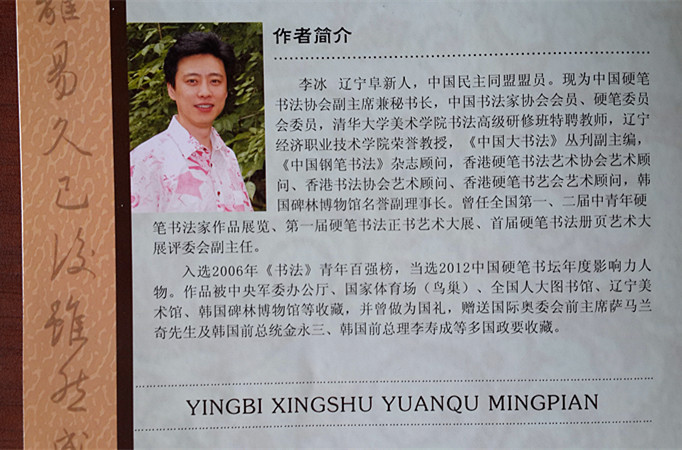 雖
易
久
已
没
雖
然
作者简介
李冰 辽宁阜新人，中国民主同盟盟员。现为中国硬笔
书法协会副主席兼秘书长，中国书法家协会会员、硬笔委员
会委员，清华大学美术学院书法高级研修班特聘教师，辽宁
经济职业技术学院荣誉教授，《中国大书法》丛刊副主编，
《中国钢笔书法》杂志顾问，香港硬笔书法艺术协会艺术顾
问、香港书法协会艺术顾问、香港硬笔书艺会艺术顾问，韩
国碑林博物馆名誉副理事长。曾任全国第一、二届中青年硬
笔书法家作品展览、第一届硬笔书法正书艺术大展、首届硬笔书法册页艺术大
展评委会副主任。
入选2006年《书法》青年百强榜，当选2012中国硬笔书坛年度影响力人
物。作品被中央军委办公厅、国家体育场(鸟巢)、全国人大图书馆、辽宁美
术馆、韩国碑林博物馆等收藏，并曾做为国礼，赠送国际奥委会前主席萨马兰
奇先生及韩国前总统金永三、韩国前总理李寿成等多国政要收藏。
YINGBI XINGSHU YUANQU MINGPIAN